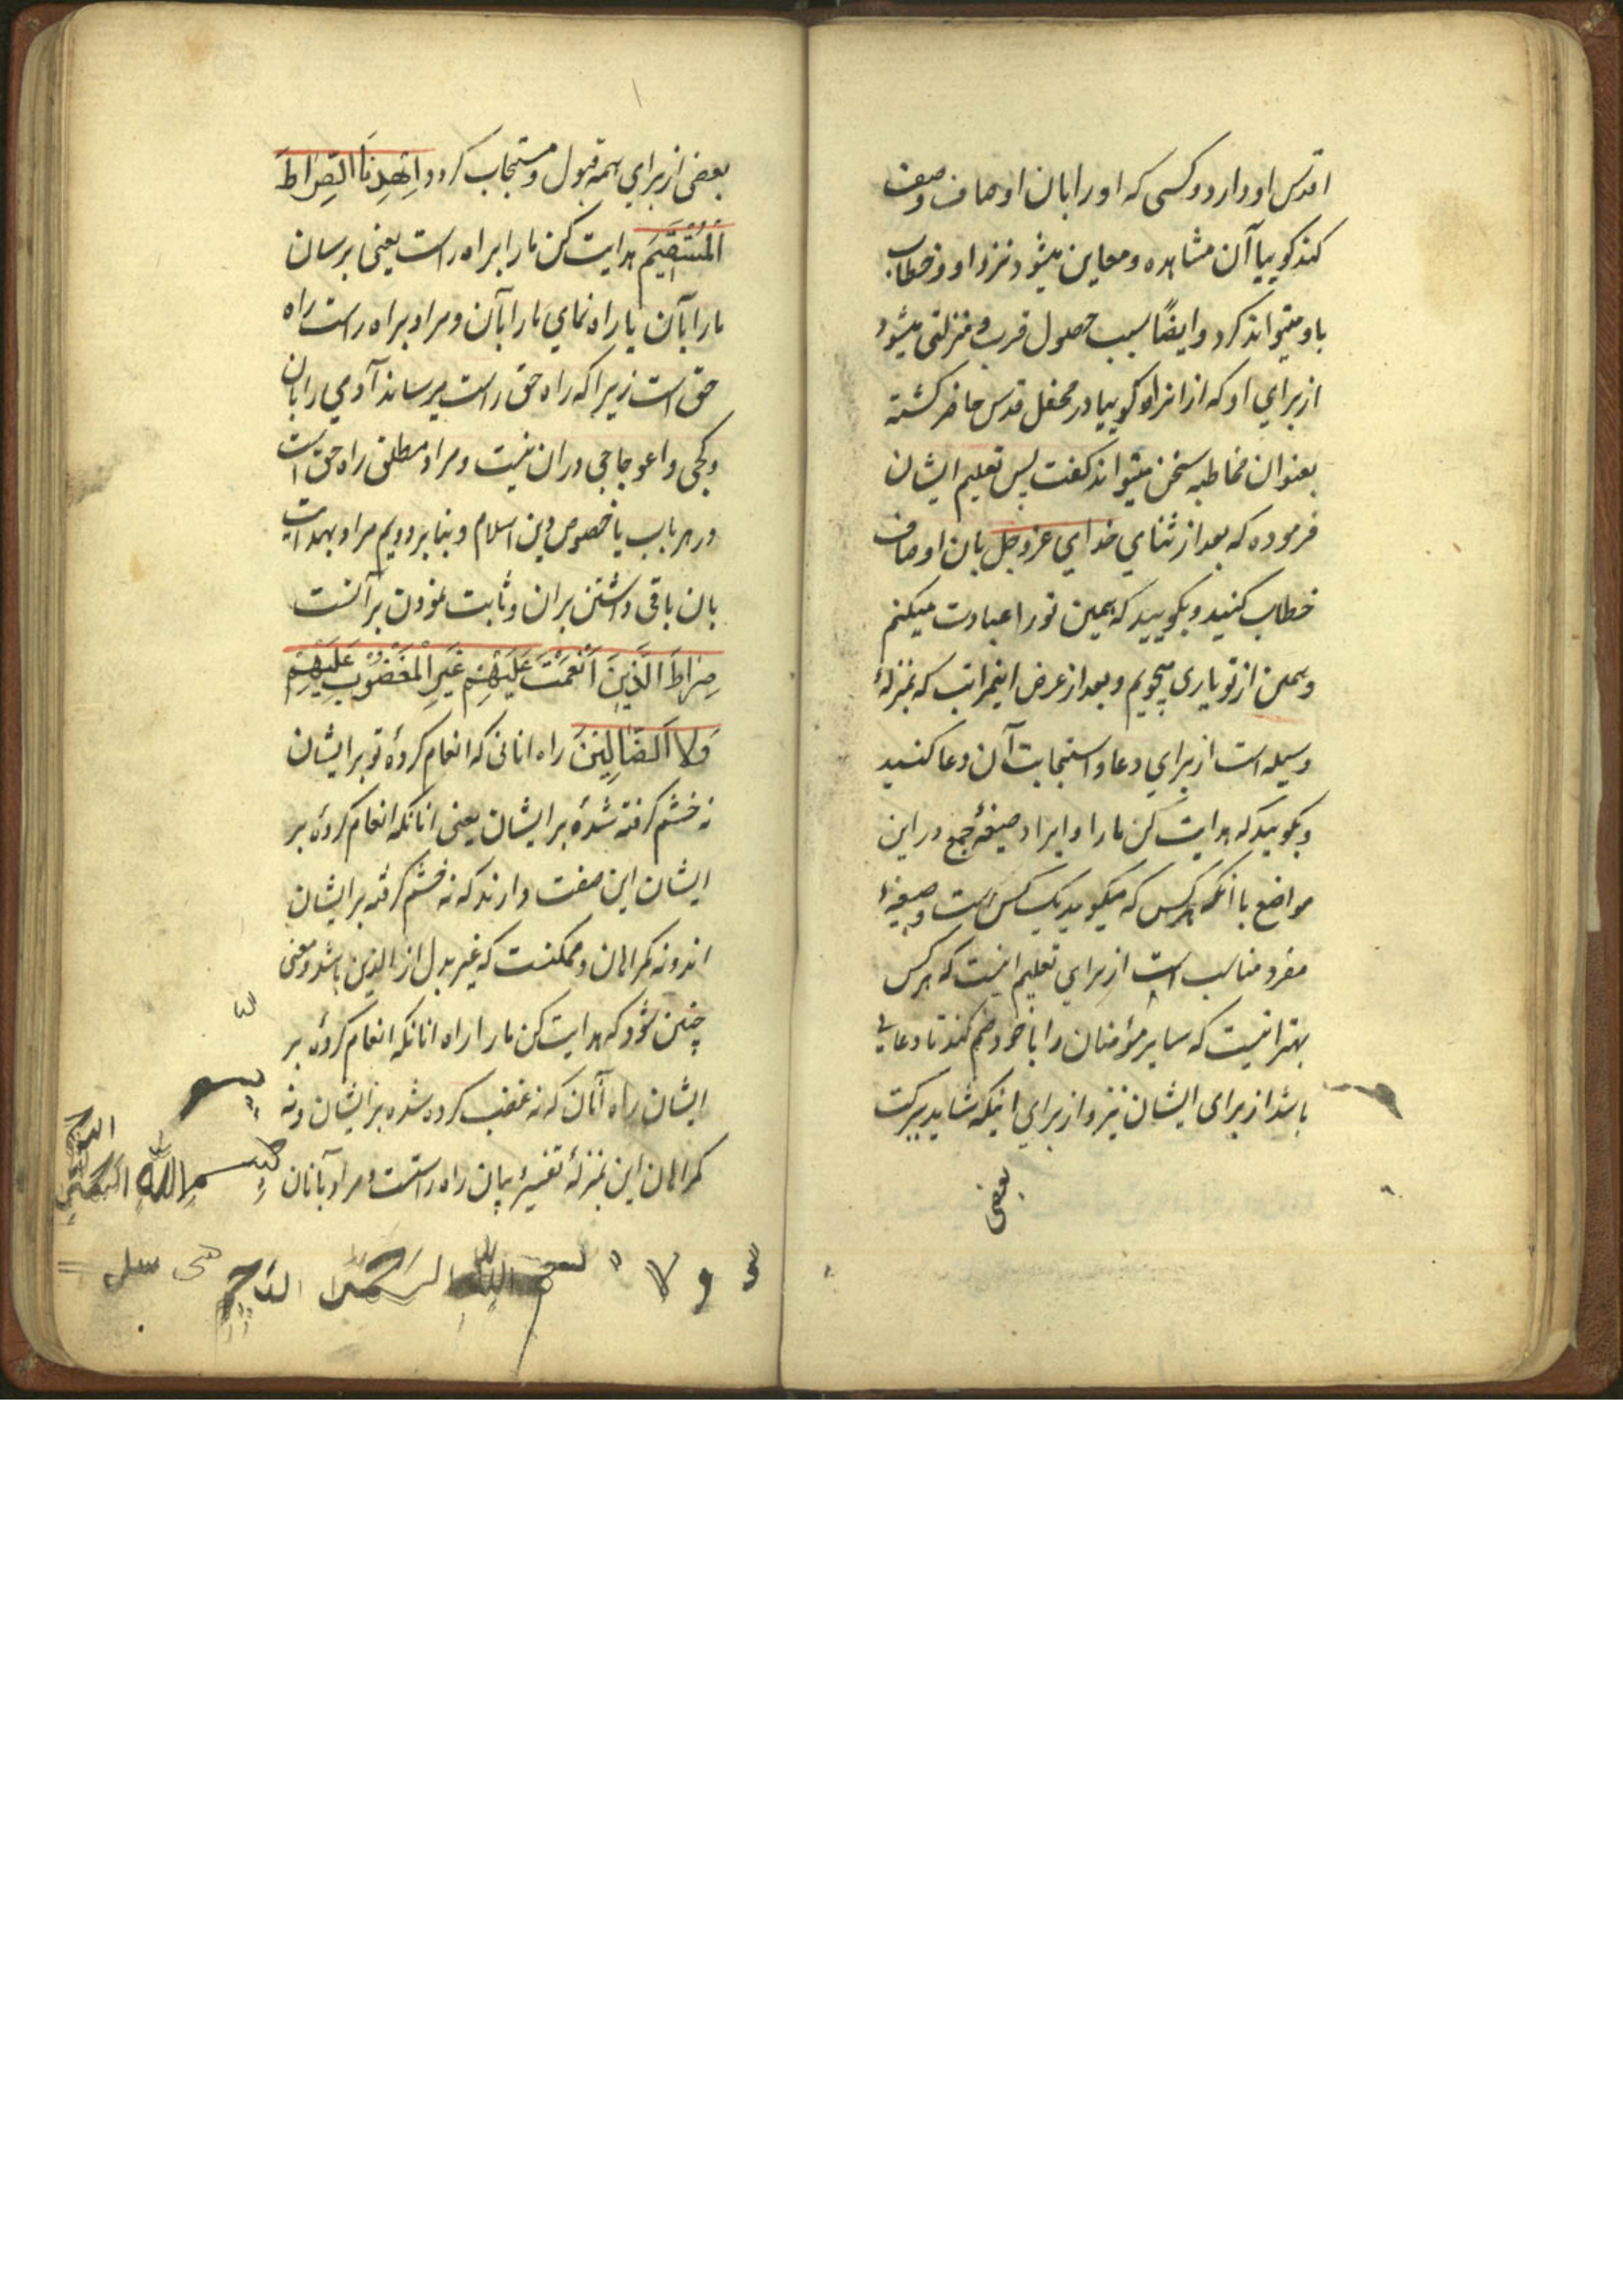 اقدس او دارد و کسی که او را بان اوصاف وصف
کند کوییا آن مشاهده و معاین میشود نزد او و خطاب
باو میتواند کرد و ایضًا سبب حصول قرب و منزلتی میشود
از برای او که از انرو کوییا در محفل قدس حاضر کشته
بعنوان مخاطبه سخن میتواند کفت پس تعلیم ایشان
فرموده که بعد از ثنای خدای عز و جل بان اوصاف
خطاب کنید و بکویید که همین تو را عبادت میکنم
و همین از تو یاری میجویم و بعد از عرض اینمراتب که بمنزلهٔ
وسیله است از برای دعا و استجابت آن دعا کنید
و بکویید که هدایت کن ما را و ایراد صیغهٔ جمع در این
مواضع با انکه هر کس که میکوید یک کس است و صیغهٔ
مفرد مناسب است از برای تعلیم اینست که هر کس
بهتر اینست که سایر مؤمنان را با خود ضم کند تا دعایی
باشد از برای ایشان نیز و از برای اینکه شاید ببرکت
بعضی
بعضی از برای همه قبول و مستجاب کردد اِهْدِنَا الصِّرَاطَ
الْمُسْتَقِیَمَ هدایت کن ما را براه راست یعنی برسان
ما را بآن یا راه نمای ما را بآن و مراد براه راست راه
حق است زیرا که راه حق راست میرساند آدمی را بان
و کجی و اعوجاجی در ان نیست و مراد مطلق راه حق است
در هر باب یا خصوص دین اسلام و بنا بر دویم مراد بهدایت
بان باقی داشتن بران و ثابت نمودن بر آنست
صِرَاطَ الَّذِینَ اَنْعَمْتَ عَلَیْهِمْ غَیرِ الْمَغْضُوبِ عَلَیْهِمْ
وَلَا الضَّالِینَ راه انانی که انعام کردهٔ تو بر ایشان
نه خشم کرفته شدهٔ بر ایشان یعنی انانکه انعام کردهٔ بر
ایشان این صفت دارند که نه خشم کرفته بر ایشان
اند و نه کمراهان و ممکنست که غیر بدل از الذین باشد و معنی
چنین شود که هدایت کن ما را راه انانکه انعام کردهٔ بر
ایشان راه آنان که نه غضب کرده شده بر ایشان و نه
کمراهان این بمنزلهٔ تفسیر بیان راه راستست و مراد بآنان
بسم
بسم الله
و لا بسم الله الرحمن الرحیم